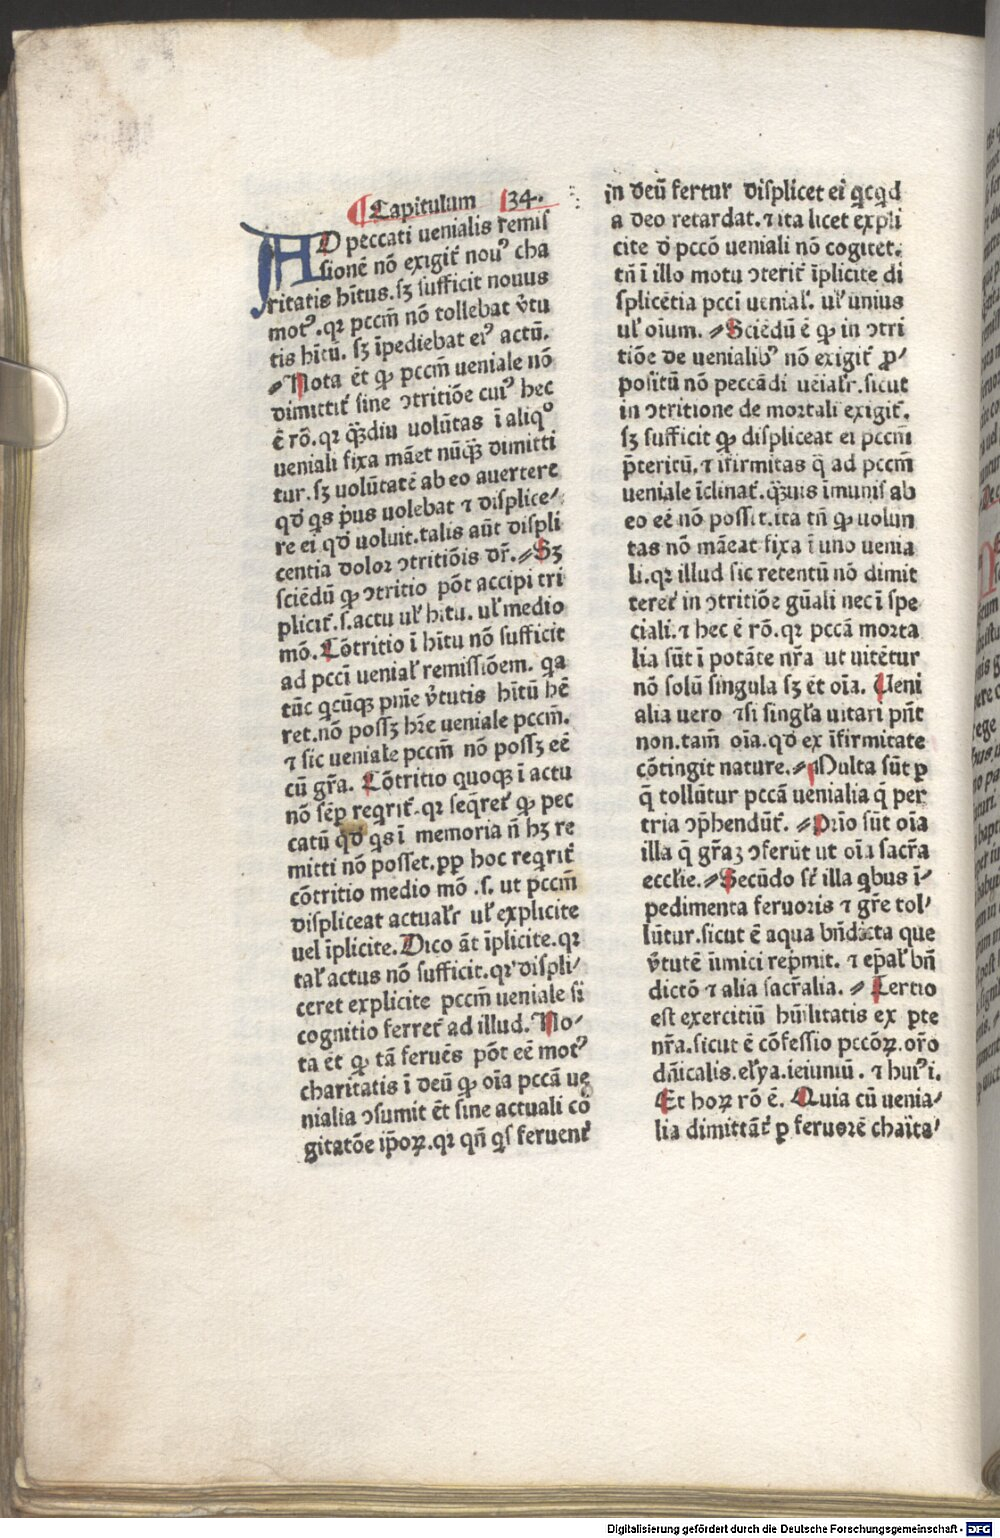 ¶Capitulum 134.
AD peccati uenialis remiſ
ſionē nō exigit̃ nouꝰ cha
ritatis hītus.ſꝫ ſufficit nouus
motꝰ.qꝛ pccm̄ nō tollebat v̓tu
tis hītū. ſꝫ īpediebat eiꝰ actū.
⸗Nota ēt ꝙ pccm̄ ueniale nō
dimittit̃ ſine ↄtritiōe cuiꝰ hec
ē rō.qꝛ qͣ̄diu uolūtas ī aliqͦ
ueniali fixa māet nūqͣ̄ dimitti
tur.ſꝫ uolūtatē ab eo auertere
qd̓ qs pͥus uolebat ⁊ diſplice⸗
re ei qd̓ uoluit.talis aūt diſpli
centia doloꝛ ↄtritiōis dꝛ̄.⸗Sꝫ
ſciēdū ꝙ ↄtritio pōt accipi tri
plicit̃.ſ.actu ul̓ hitu. ul̓ medio
mō. Cōtritio ī hītu nō ſufficit
ad pccī uenial̓ remiſſiōem. qa
tūc qcūqꝫ pnīe v̓tutis hītū hē
ret.nō poſſꝫ hr̄e ueniale pccm̄.
⁊ ſic ueniale pccm̄ nō poſſꝫ eē
cū gr̄a. Cōtritio quoqꝫ ī actu
nō ſēp reqrit̃.qꝛ ſeq̄ret̃ ꝙ pec
catū qd̓ qs ī memoria n̄ hꝫ re
mitti nō poſſet.ꝓp hoc reqrit̃
cōtritio medio mō .ſ. ut pccm̄
diſpliceat actualr̓ ul̓ explicite
uel īplicite. Dico āt īplicite.qꝛ
tal̓ actus nō ſufficit.qꝛ diſpli⸗
ceret explicite pccm̄ ueniale ſi
cognitio ferret̃ ad illud. No⸗
ta ēt ꝙ tā feruēs pōt eē motꝰ
charitatis ī deū ꝙ oīa pccā ue
nialia ↄſumit ēt ſine actuali cō
gitatōe ip̄oꝝ.qꝛ qn̄ qſ feruent̓
in deū fertur diſplicet ei qcqd
a deo retardat.⁊ ita licet expli
cite d̓ pccō ueniali nō cogitet.
tn̄ ī illo motu ↄterit̃ īplicite di
ſplicētia pccī uenial̓. ul̓ unius
ul̓ oium. ⸗Sciēdū ē ꝙ in ↄtri
tiōe de uenialibꝰ nō exigit̃ ꝓ⸗
poſitū nō peccādi ueīalr̓.ſicut
in ↄtritione de mortali exigit̃.
ſꝫ ſufficit ꝙ diſpliceat ei pccm̄
p̄teritū,⁊ īfirmitas q̄ ad pccm̄
ueniale īclinat̃.qͣ̄uis īmunis ab
eo eē nō poſſit.ita tn̄ ꝙ uolun
tas nō māeat fixa ī uno uenia
li.qꝛ illud ſic retentū nō dimit
teret̃ in ↄtritiōe gn̄ali nec ī ſpe
ciali.⁊ hec ē rō.qꝛ pccā moꝛta
lia ſūt ī potāte nr̄a ut uitētur
nō ſolū ſingula ſꝫ ēt oīa. Ueni
alia uero ⁊ſi ſingl̓a uitari pn̄t
non.tam̄ oīa.qd̓ ex īfirmitate
cōtingit nature.⸗Multa ſūt ꝑ
q̄ tollūtur pccā uenialia q̄ per
tria ↄp̄hendūt̃. ⸗Prīo ſūt oīa
illa q̄ gr̄aꝫ ↄferūt ut oīa ſacr̄a
eccl̓ie.⸗Secūdo ſt̓ illa qbus ī⸗
pedimenta feruoꝛis ⁊ gr̄e tol⸗
lūtur.ſicut ē aqua bn̄dicta que
v̓tutē īimici rep̄mit. ⁊ ep̄al̓ bn̄
dictō ⁊ alia ſacr̄alia. ⸗ Tertio
eſt exercitiū hūilitatis ex ꝑte
nr̄a.ſicut ē cōfeſſio pccōꝝ.oꝛ̄o
dn̄icalis.el̓ya.ieiuniū . ⁊ huiꝰi.
Et hoꝝ rō ē. Quia cū uenia⸗
lia dimittāt̃ ꝑ feruoꝛē chaīta⸗
Digitalisierung gefördert durch die Deutsche Forschungsgemeinschaft - DFG